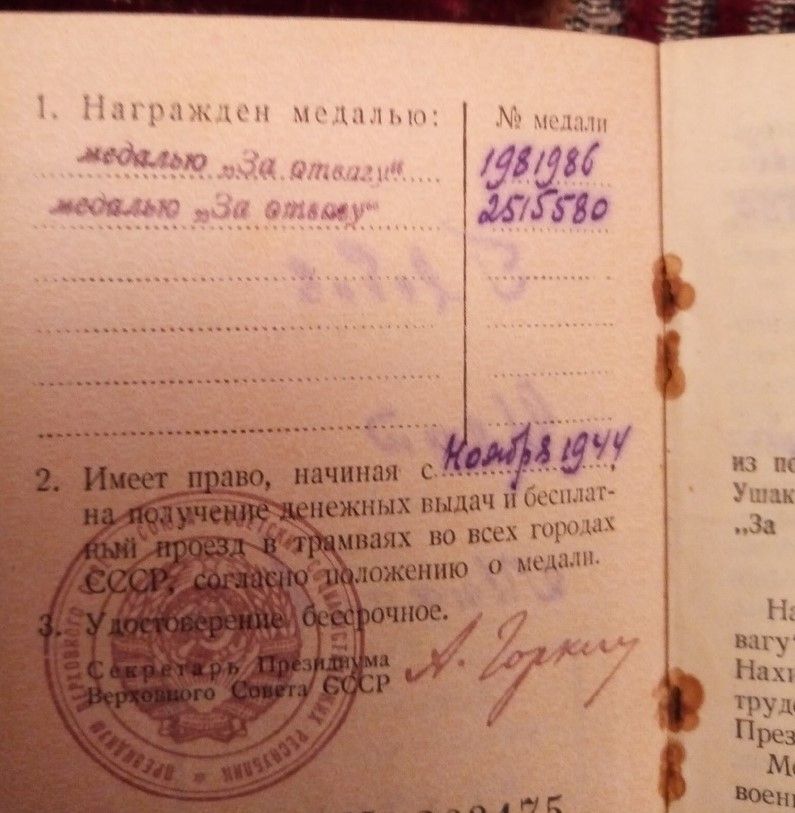 1. Награжден медалью:
№ медали
медалью „За отвагу“
1981986
медалью „За отвагу“
2515580
2. Имеет право, начиная с Ноября 1944,
на получение денежных выдач и бесплат-
ный проезд в трамваях во всех городах
СССР, согласно положению о медали.
3. Удостоверение бессрочное.
Секретарь Президиума
Верховного Совета СССР
А. Горкин
из
Ушак
„За
На
вагу“
Нахи
труд
През
М
воен